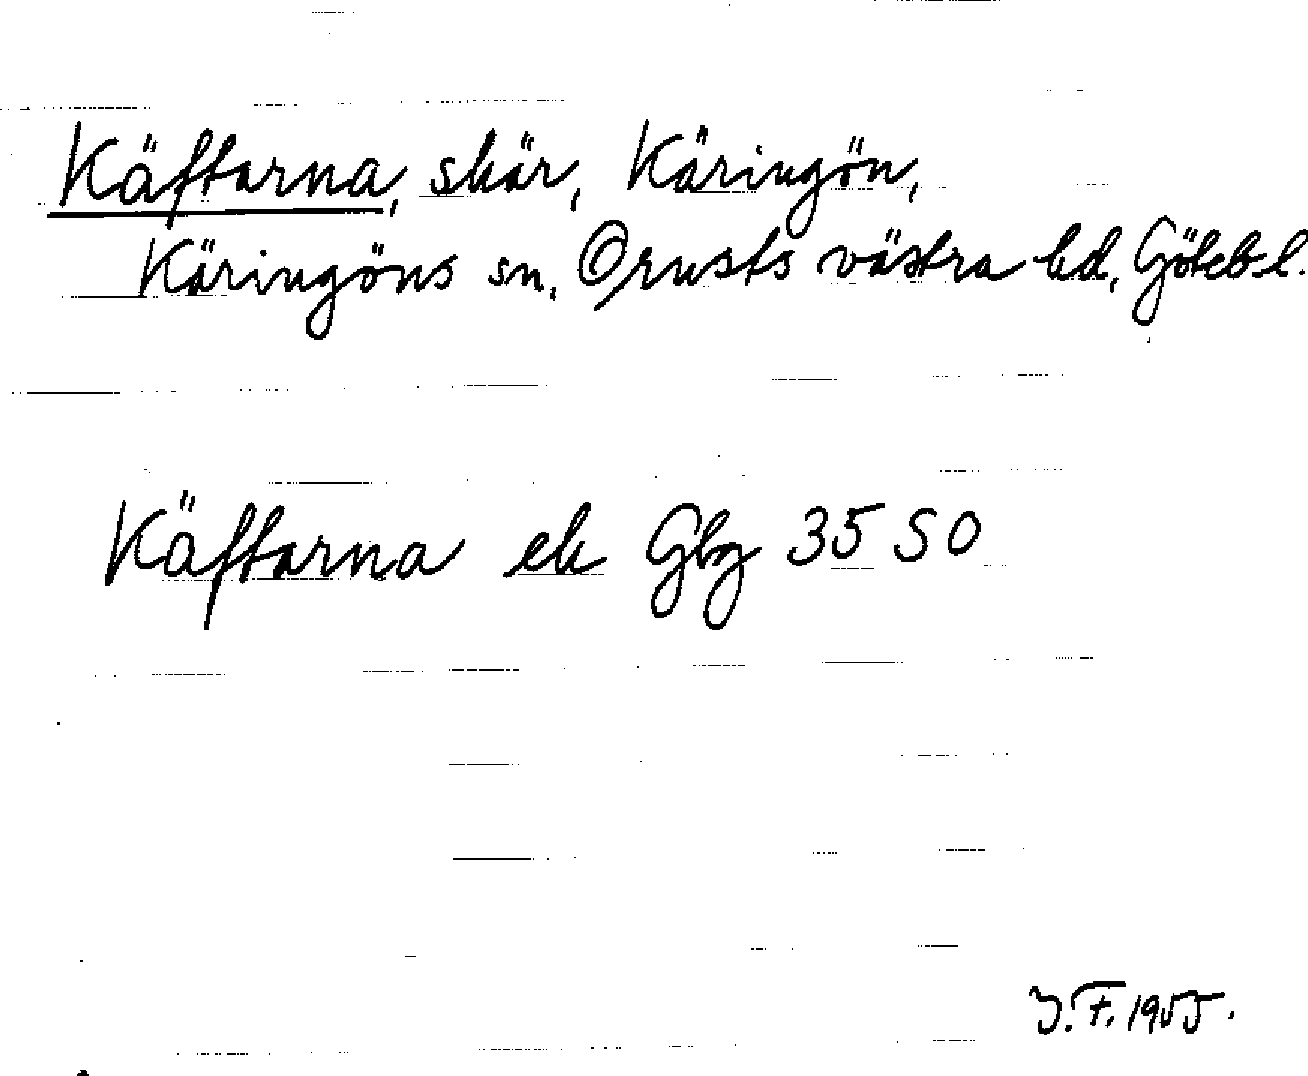 Käftarna, skär, Käringön,
Käringöns sn, Orusts västra hd, Göteb. l.
Käftarna ek Gbg 35 SO
J. F. 1955.